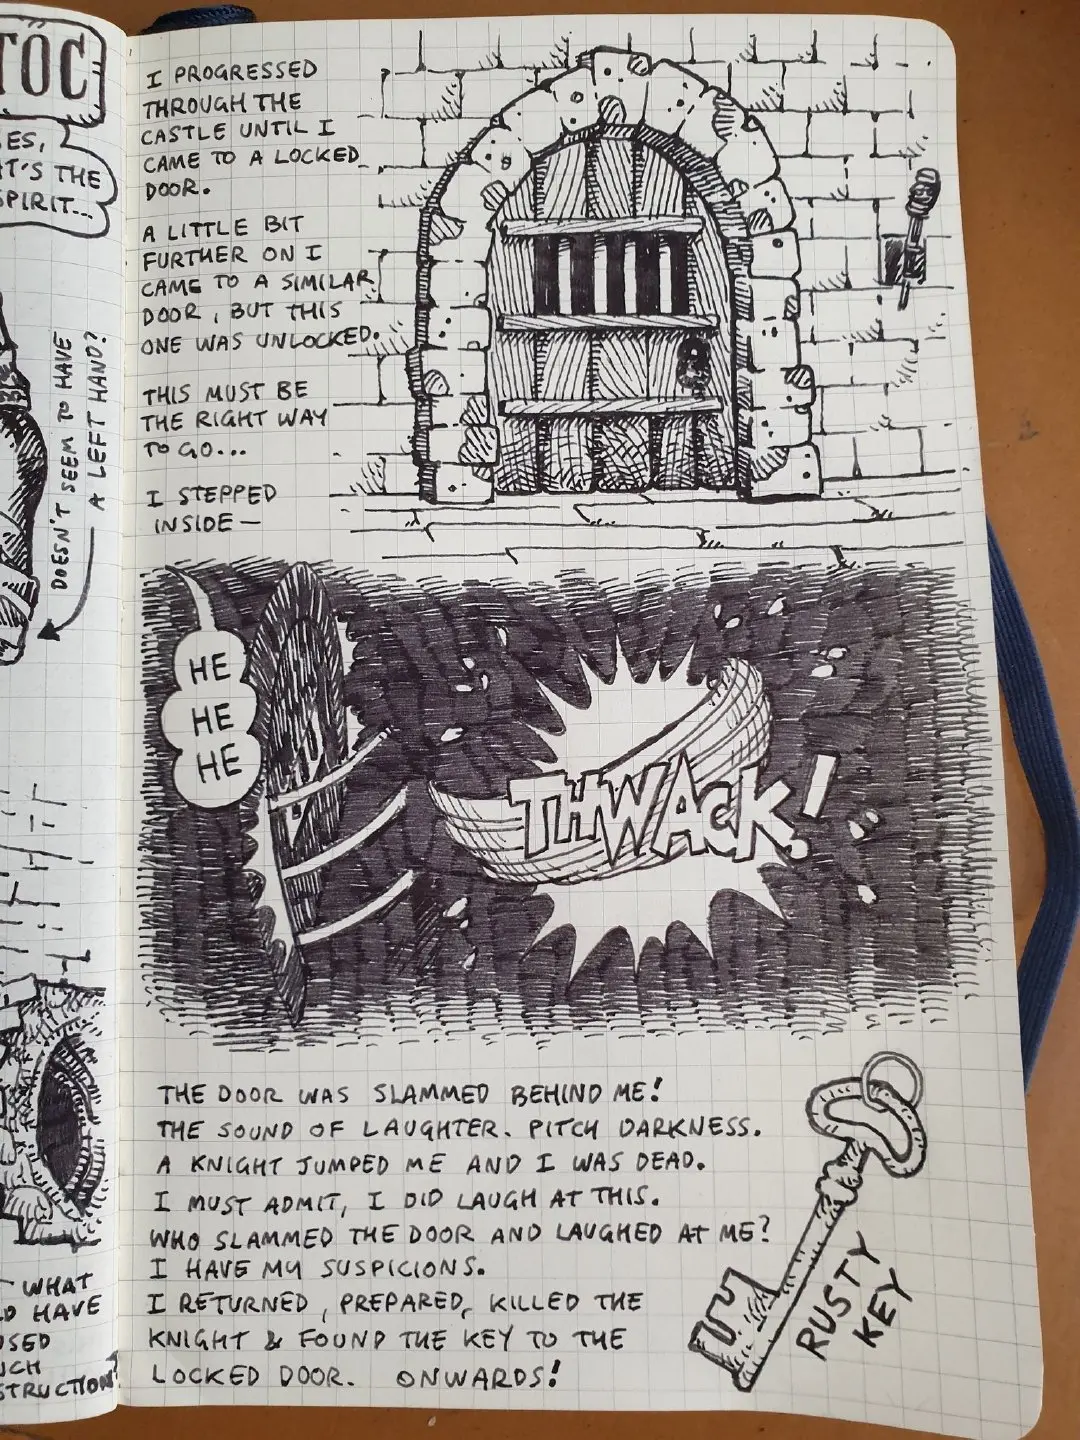 TOC
ES,
T'S THE
SPIRIT...
DOESN'T SEEM TO HAVE
A LEFT HAND?
WHAT
HAVE
I PROGRESSED
THROUGH THE
CASTLE UNTIL I
CAME TO A LOCKED
DOOR.
A LITTLE BIT
FURTHER ON I
CAME TO A SIMILAR
DOOR, BUT THIS
ONE WAS UNLOCKED.
THIS MUST BE
THE RIGHT WAY
TO GO...
I STEPPED
INSIDE—
HE
HE
HE
THWACK!
THE DOOR WAS SLAMMED BEHIND ME!
THE SOUND OF LAUGHTER. PITCH DARKNESS.
A KNIGHT JUMPED ME AND I WAS DEAD.
I MUST ADMIT, I DID LAUGH AT THIS.
WHO SLAMMED THE DOOR AND LAUGHED AT ME?
I HAVE MY SUSPICIONS.
I RETURNED, PREPARED, KILLED THE
KNIGHT & FOUND THE KEY TO THE
LOCKED DOOR. ONWARDS!
RUSTY
KEY